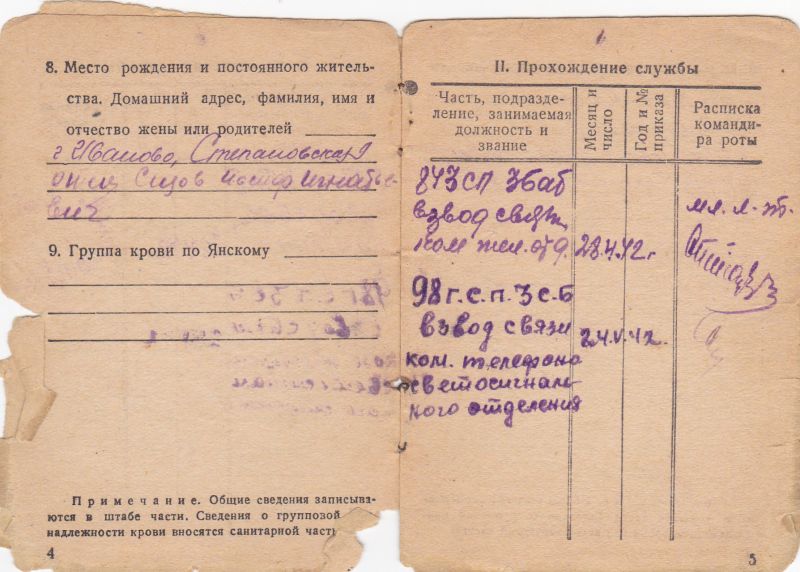 8. Место рождения и постоянного житель-
ства. Домашний адрес, фамилия, имя и
отчество жены или родителей
г Иваново, Степановская
Сизов Иосиф Игнатье-
вич
9. Группа крови по Янскому
Примечание. Общие сведения записыва-
ются в штабе части. Сведения о групповой
надлежности крови вносятся санитарной част
4
II. Прохождение службы
Часть, подразде-
ление, занимаемая
должность и
звание
Месяц и
число
Год и №
приказа
Расписка
команди-
ра роты
843 СП 3бат
взвод связи
28.4.42г
мл. л-т.
98 г.с.п. 3 с.б
взвод связи
24.V.42г.
ком. телефоно
светосигналь-
ного отделения
5